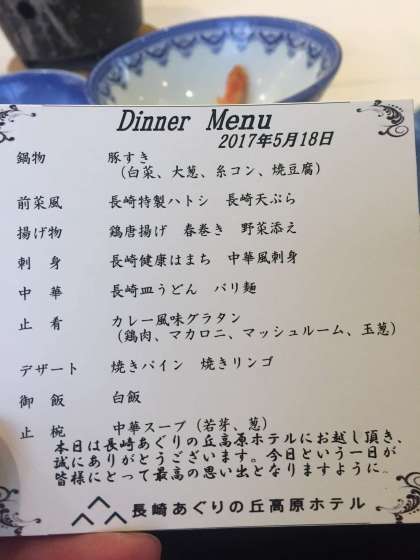 Dinner Menu
2017年5月18日
鍋物 豚すき
（白菜、大葱、糸コン、焼豆腐）
前菜風 長崎特製ハトシ 長崎天ぷら
揚げ物 鶏唐揚げ 春巻き 野菜添え
刺身 長崎健康はまち 中華風刺身
中華 長崎皿うどん パリ麺
止肴 カレー風味グラタン
（鶏肉、マカロニ、マッシュルーム、玉葱）
デザート 焼きパイン 焼きリンゴ
御飯 白飯
止椀 中華スープ（若芽、葱）
本日は長崎あぐりの丘高原ホテルにお越し頂き、
誠にありがとうございます。今日という一日が
皆様にとって最高の思い出となりますように…
長崎あぐりの丘高原ホテル